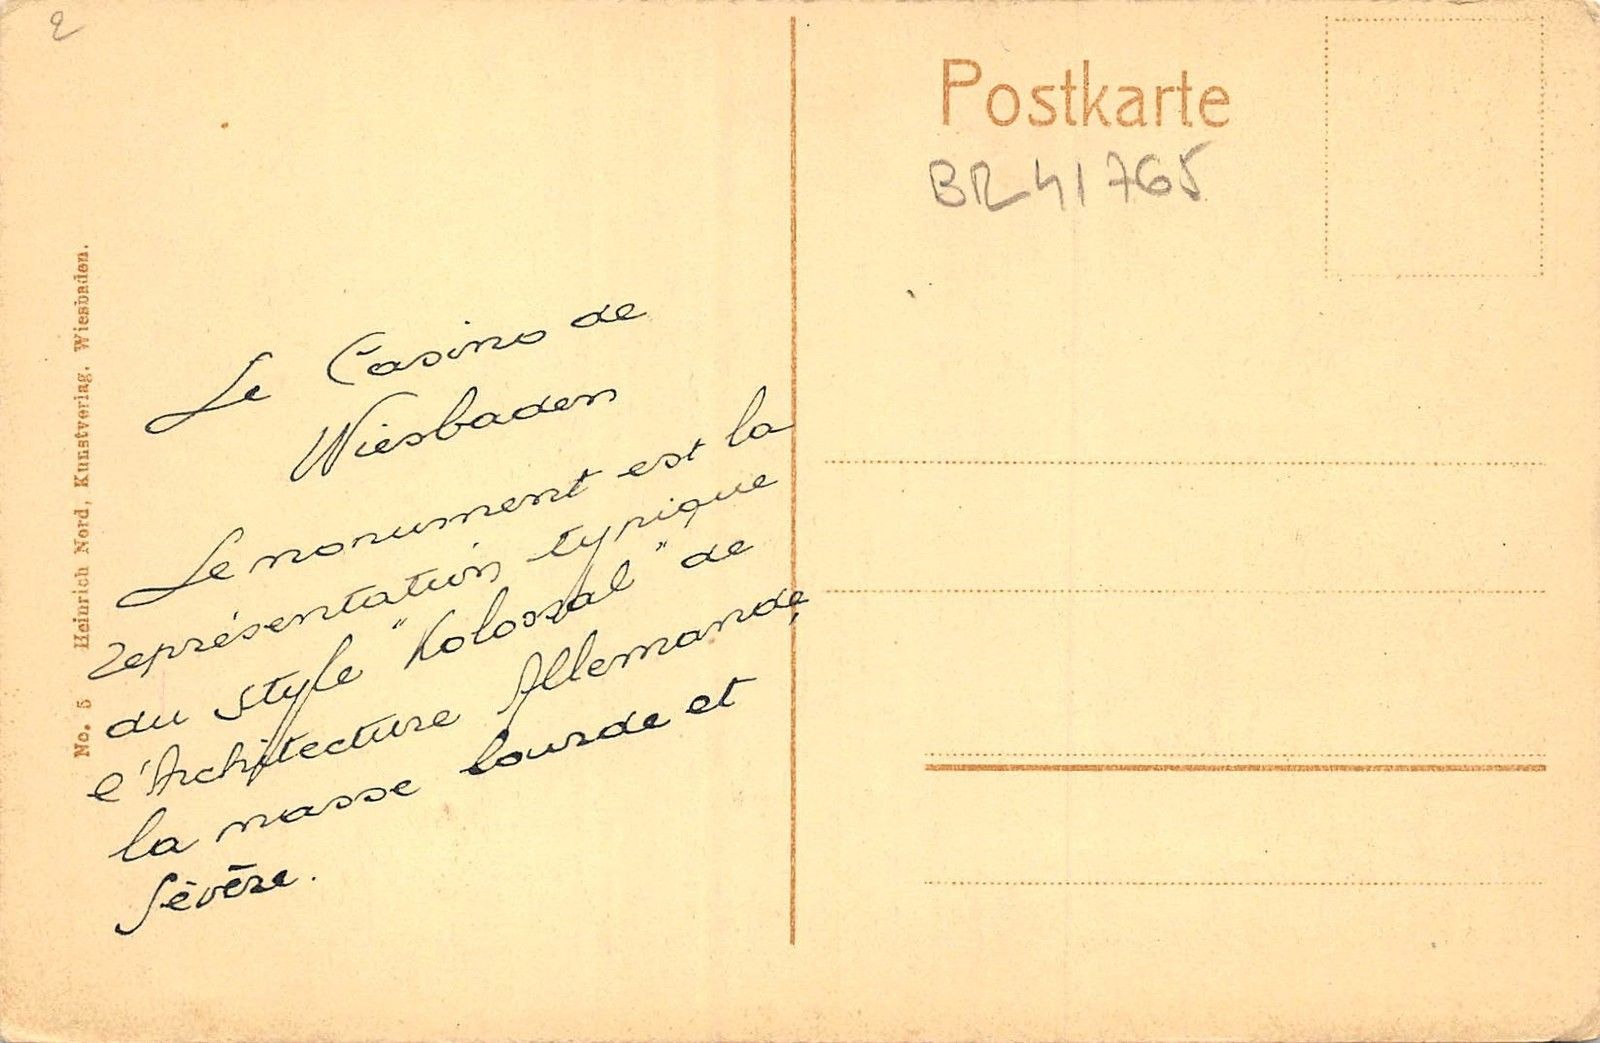 2
Postkarte
BR41765
Le Casino de
Wiesbaden
Le monument est la
représentation typique
du style "Kolossal" de
l'Architecture Allemande,
la masse lourde et
sévère.
No. 5 Heinrich Nord, Kunstverlag, Wiesbaden.